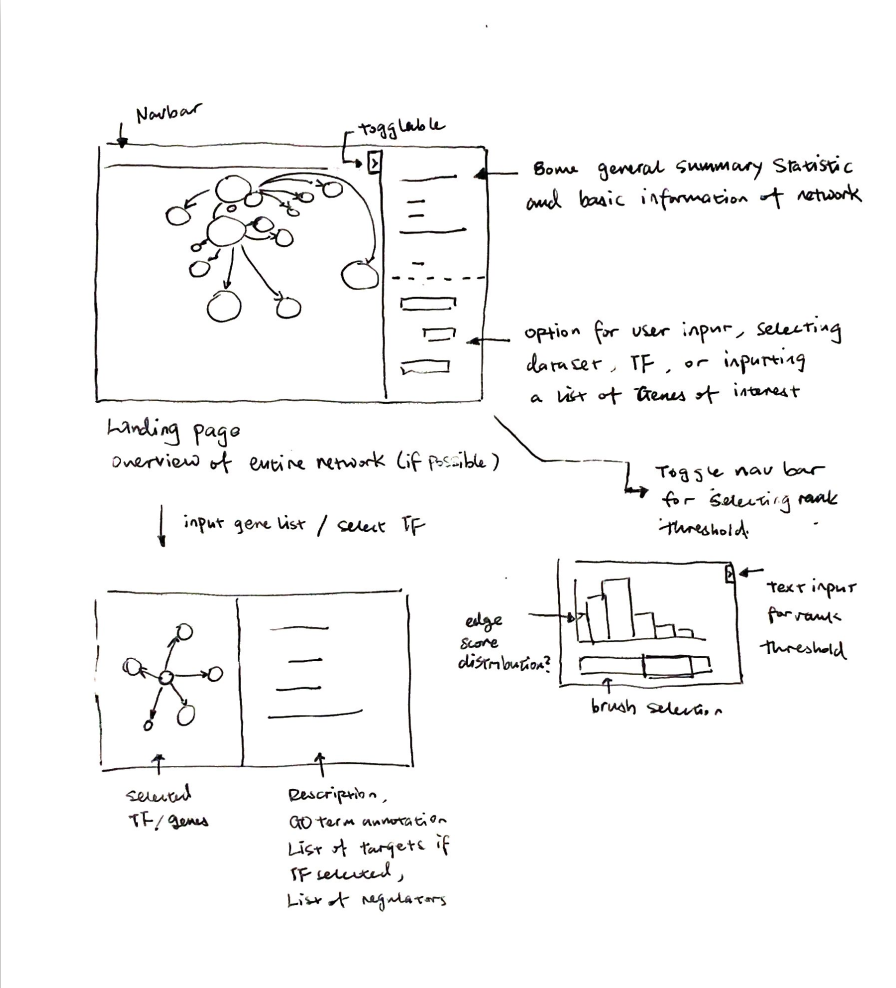 Navbar
togglable
Some general summary statistic
and basic information of network
option for user input, selecting
dataset, TF, or inputting
a list of Genes of interest
Landing page
overview of entire network (if possible)
Toggle nav bar
for selecting rank
threshold.
input gene list / select TF
text input
for rank
threshold
edge
score
distribution?
brush selection
selected
TF/genes
Description,
GO term annotation
List of targets if
TF selected,
List of regulators